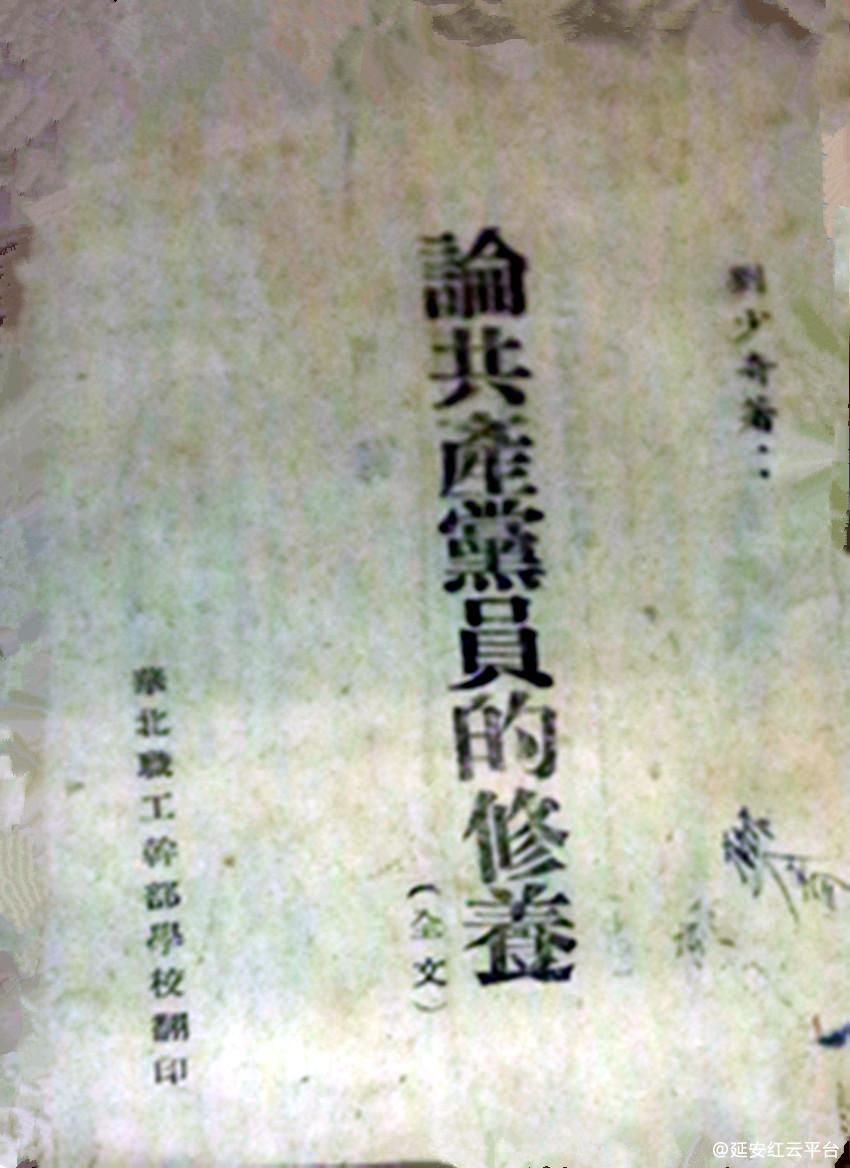 劉少奇著：
論共產黨員的修養
（全文）
華北職工幹部學校翻印
@延安红云平台